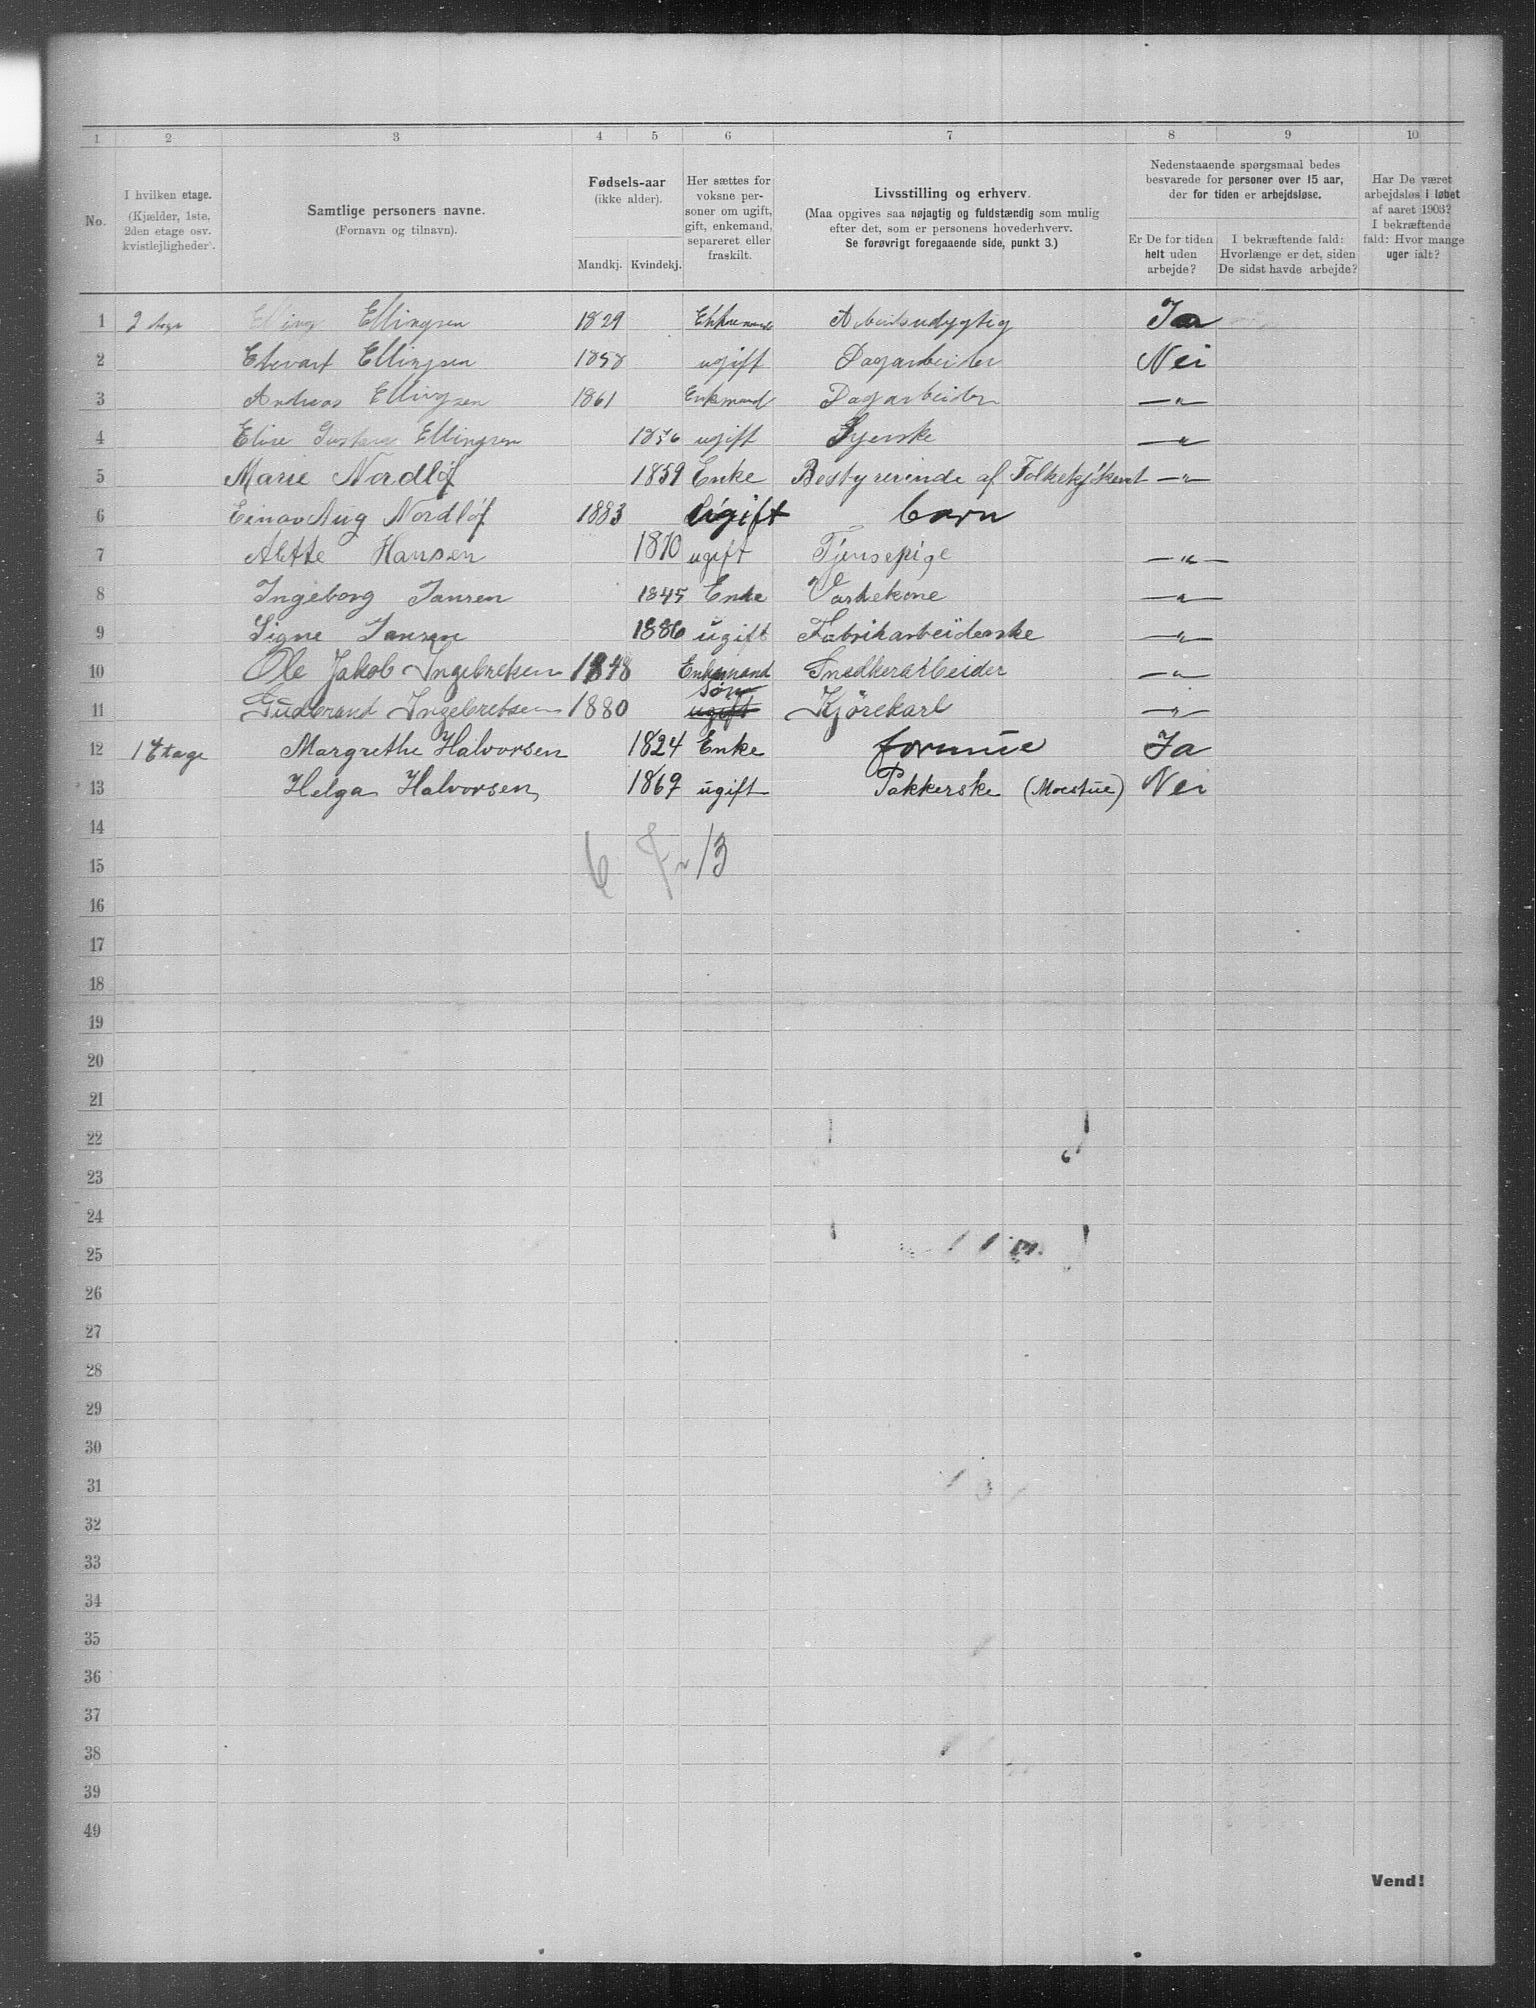 1 2 3 4 5 6 7 8 9 10
No.
I hvilken etage.
(Kjælder, 1ste,
2den etage osv.
kvistlejligheder).
Samtlige personers navne.
(Fornavn og tilnavn).
Fødsels-aar
(ikke alder).
Mandkj. Kvindekj.
Her sættes for
voksne per-
soner om ugift,
gift, enkemand,
separeret eller
fraskilt.
Livsstilling og erhverv.
(Maa opgives saa nøjagtig og fuldstændig som mulig
efter det, som er personens hovederhverv.
Se forøvrigt foregaaende side, punkt 3.)
Nedenstaaende spørgsmaal bedes
besvarede for personer over 15 aar,
der for tiden er arbejdsløse.
Er De for tiden
helt uden
arbejde?
I bekræftende fald:
Hvorlænge er det, siden
De sidst havde arbejde?
Har De været
arbejdsløs i løbet
af aaret 1903?
I bekræftende
fald: Hvor mange
uger ialt?
1 2 Ellingsen 1829 Ja
2 Ellingsen ugift Dagarbeider Nei
3 Andreas Ellingsen 1861 Enkmand Dagarbeider — " —
4 Elise Ellingsen ugift Syerske — " —
5 Marie Nordløf 1859 Enke Bestyrerinde af — " —
6 Einar Aug Nordløf 1883 Ugift barn
7 Alette Hansen 1870 ugift Tjensepige — " —
8 Ingeborg Jansen 1845 Enke Vaskekone — " —
9 Signe Jansen 1886 ugift Fabrikarbeiderske — " —
10 Ole Jakob Ingebretsen 1848 Enkemand Snedkerarbeider — " —
11 Gudbrand Ingebretsen 1880 Søn ugift Kjørekarl — " —
12 1 Etage Margrethe Halvorsen 1824 Enke formue Ja
13 Helga Halvorsen 1867 ugift Pakkerske (Moestue) Nei
14
15 6 13
16
17
18
19
20
21
22
23
24
25
26
27
28
29
30
31
32
33
34
35
36
37
38
39
40
Vend!